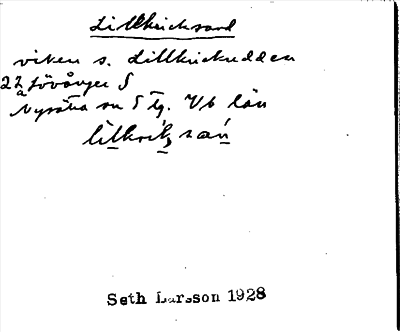 Lillkricksand
viken s. Lillkrickudden
22 Lövånger S
a
Nysätra sn S Tg. Vb län
Seth Larsson 1928